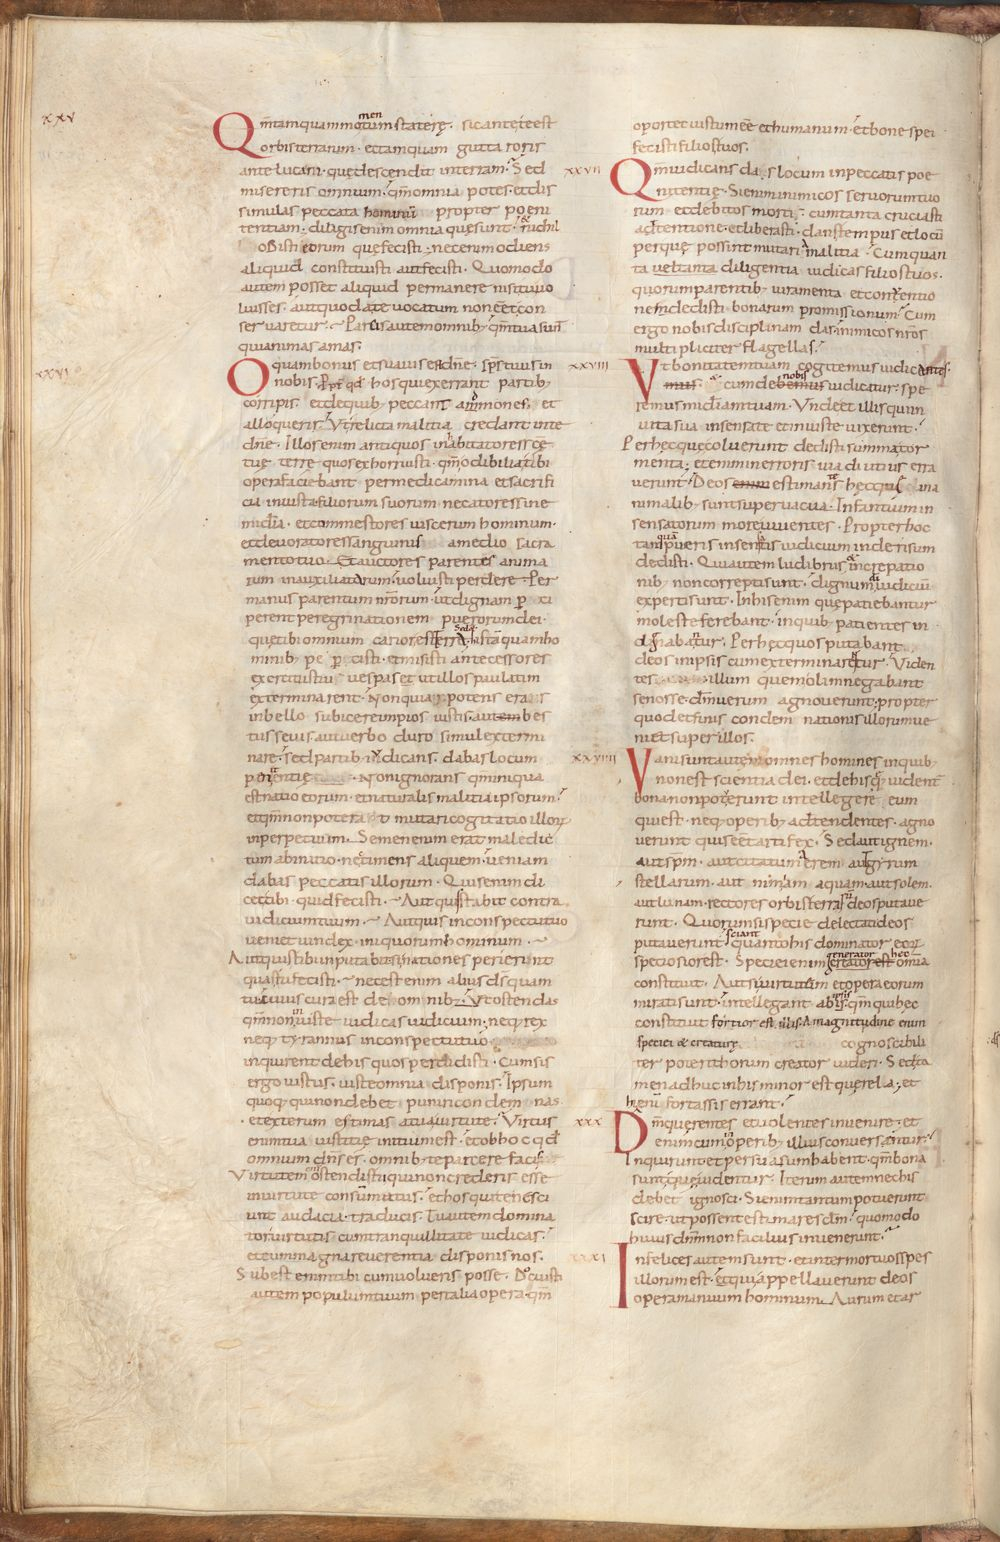 xxv
Qm̄ tamquam momentum staterę. sic ante te est
orbis terrarum. et tamquam gutta roris
ante lucani. quę descendit in terram. Sed
misereris omnium. qm̄ omnia potes. et dis
simulas peccata hominū propter poeni
tentiam. diligis enim omnia quę sunt. & nichil
odisti eorum quę fecisti. nec enim odiens
aliquid constituisti aut fecisti. Quomodo
autem posset aliquid permanere nisi tu uo
luisses. aut quod a te uocatum non eēt con
seruaretur. Parcis autem omnib; qm̄ tua sunt
qui animas amas.
xxvi
O quam bonus et suauis est dn̄e. sp̄s tuus in
nobis. Propt qđ hos qui exerrant partib;
corripis. et de quib; peccant ammones. et
alloqueris. Ut relicta malitia credant in te
dn̄e. Illos enim antiquos inhabitatores scę
tuę terrę quos exhorruisti. qm̄ odibilia tibi
opera faciebant per medicamina et sacrifi
cia iniusta. filiorum suorum necatores sine
mīdia. et commestores uiscerum hominum.
et deuoratores sanguinis a medio sacra
mento tuo. Et auctores parentes anima
rum inauxiliatarum. uoluisti perdere Per
manus parentum nr̄orum. ut dignam p xi
perent peregrinationem puerorum dei.
quę tibi omnium carior est terra. Sed & istis tamquam ho
minib; pe p cisti. et misisti antecessores
exercitus tui uespas. et ut illos paulatim
exterminarent. Non quia inpotens eras
in bello subicere impios iustis. aut bes
tiis seuis. aut uerbo duro simul extermi
nare. sed partib; iudicans dabas locum
penitentię. Non ignorans qm̄ iniqua
est natio eorum. et naturalis malitia ipsorum.
et qm̄ non poterat mutari cogitatio illorum
in perpetuum. Semen enim erat maledic
tum ab initio. nec timens aliquem. ueniam
dabas peccatis illorum. Quis enim di
cet tibi quid fecisti. Aut quis stabit contra
iudicium tuum. Aut quis in conspectu tuo
ueniet uindex iniquorum hominum.
Aut quis tibi inputabit si nationes perierint
quas tu fecisti. nec est enim alius ds̄ quam
tu. cui cura est de omnib;. Ut ostendas
qm̄ non iniuste iudicas iudicium. neq; rex
neq; tyrannus in conspectu tuo
inquirent de his quos perdidisti. Cum sis
ergo iustus. iuste omnia disponis. Ipsum
quoq; qui non debet puniri condemnas.
et exterum estimas a tua uirtute. Virtus
enim tua iustitię initium est. et ob hoc qđ
omnium dn̄s es. omnib; te parcere facis.
Virtutem enim ostendis tu qui non crederis esse
in uirtute consummatus. et hos qui te nesci
unt audacia traducis. Tu autem domina
tor uirtutis cum tranquillitate iudicas.
et cum magna reuerentia disponis nos.
Subest enim tibi cum uolueris posse. Docuisti
autem populum tuum per talia opera. qm̄
oportet iustum eē et humanum. et bonę spei
fecisti filios tuos.
xxvii
Qm̄ iudicans das locum in peccatis poe
nitentię. Si enim inimicos seruorum tuo
rum et debitos morti. cum tanta cruciasti
adtentione. et liberasti. dans tempus et locū
per quę possint mutari a malitia. Cum quan
ta diligentia iudicas filios tuos.
quorum parentib; iuramenta et conuentio
nem dedisti bonarum promissionum. Cum
ergo nobis disciplinam das. inimicos nr̄os
multipliciter flagellas.
xxviii
Vt bonitatem tuam cogitemus iudicantes.
cum de nobis iudicatur. spe
remus mīdiam tuam. Unde et illis qui in
uita sua insensate et iniuste uixerunt.
Per hęc quę coluerunt dedisti summa tor
menta. etenim in erroris uia diutius erra
uerunt. Deos estimantes hęc quę
animalib; sunt superuacua. Infantium in
sensatorum more uiuentes. Propter hoc
tamquam pueris insensatis iudicium in derisum
dedisti. Qui autem ludibriis & increpatio
nib; non correpti sunt. dignum dī iudiciū
experti sunt. In his enim quę patiebantur
moleste ferebant. in quib; patientes in
dignabantur. Per hęc quos putabant
deos in ipsis cum exterminarentur. Uiden
tes illum quem olim negabant
se nosse. dm̄ uerum agnouerunt. propter
quod et finis condemnationis illorum ue
niet super illos.
xxviiii
Vani sunt autem omnes homines in quib;
non est scientia dei. et de his quę uident̄
bona non poterunt intellegere eum
qui est. neq; operib; adtendentes. agno
uerunt quis eēt artifex. Sed aut ignem.
aut spm̄. aut citatum aerem. aut gyrum
stellarum. aut nimiam aquam. aut solem.
aut lunam. rectores orbis terrarū deos putaue
runt. Quorum si specie delectati deos
putauerunt. sciant quanto his dominator eorum
speciosior est. Speciei enim generator hęc omnia
constituit. Aut si uirtutem et opera eorum
mirati sunt. intellegant ab ipsis. qm̄ qui hęc
constituit fortior est illis. A magnitudine enim
speciei & creaturę cognoscibili
ter poterit horum creator uideri. Sed ta
men adhuc in his minor est querela. et
hi enī fortassis errant.
xxx
Dm̄ querentes et uolentes inuenire. et
enim cum in operib; illius conuersantur.
Inquirunt et persuasum habent. qm̄ bona
sunt quę uidentur. Iterum autem nec his
debet ignosci. Si enim tantum potuerunt
scire. ut possent estimare sc̄lm. quomodo
huius dm̄ non facilius inuenerunt.
xxxi
Infelices autem sunt. et inter mortuos spes
illorum est. et quia appellauerunt deos
opera manuum hominum. Aurum et ar